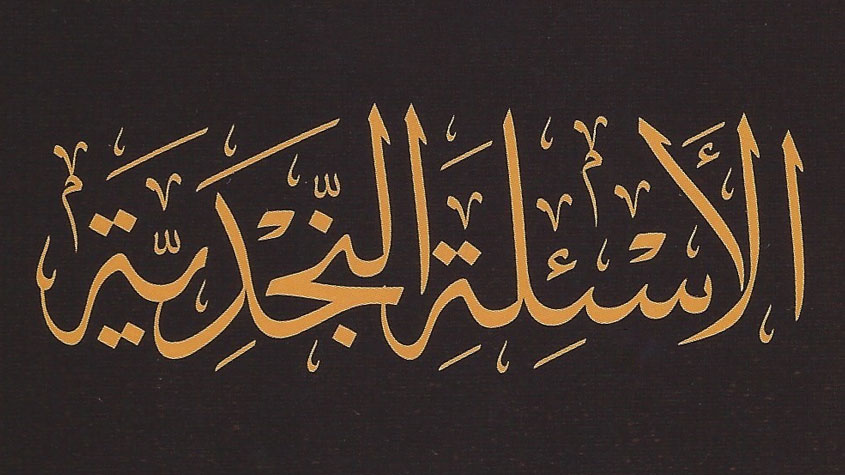 الأَسْئِلَةِ النَّجْدِيَّةِ